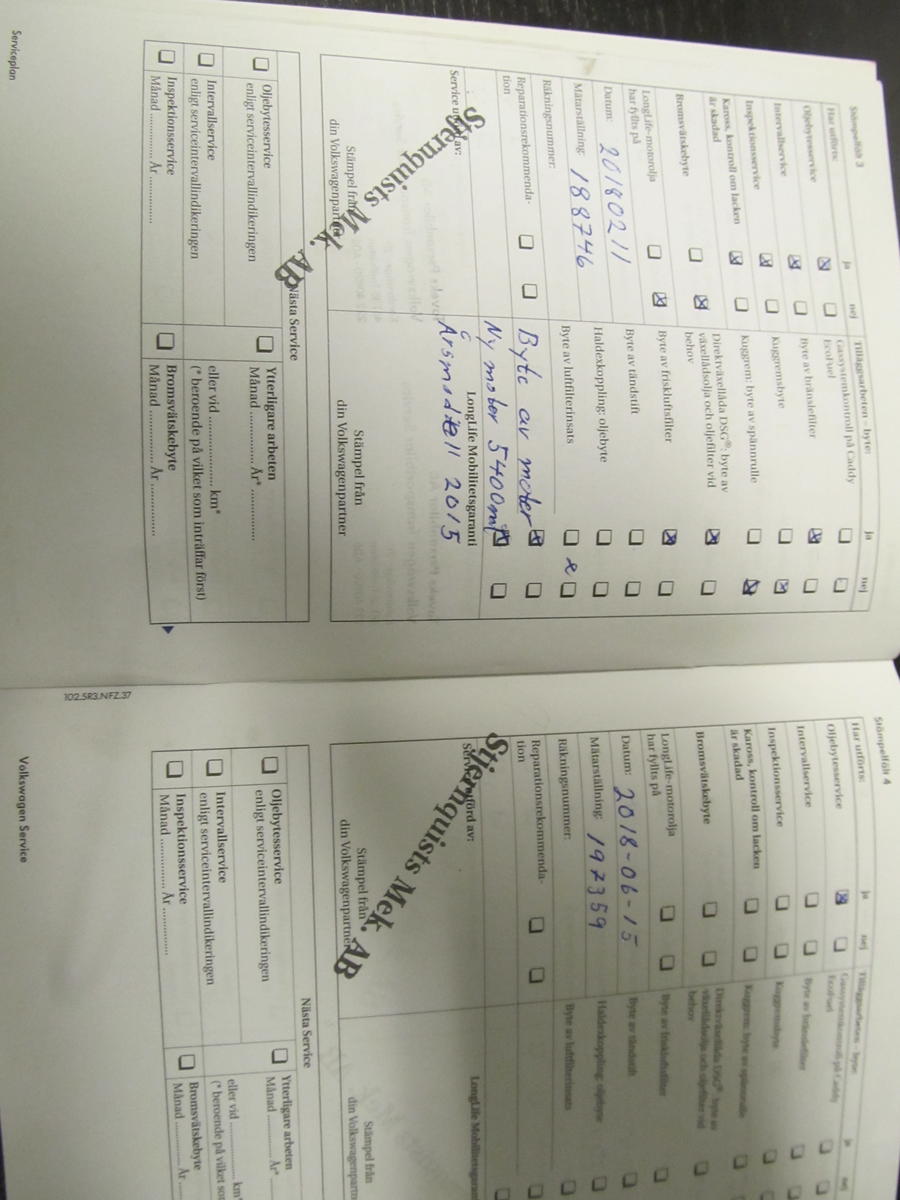 Stämpelfält 3
Har utförts: ja nej
Oljebytesservice
Intervallservice
Inspektionsservice
Kaross, kontroll om lacken
är skadad
Bromsvätskebyte
LongLife-motorolja
har fyllts på
Datum: 20180211
Mätarställning: 188746
Räkningsnummer:
Reparationsrekommenda-
tion
Service utförd av:
Stjernquists Mek. AB
Stämpel från
din Volkswagenpartner
Tilläggsarbeten – byte: ja nej
Gassystemkontroll på Caddy
EcoFuel
Byte av bränslefilter
Kuggremsbyte
Kuggrem: byte av spännrulle
Direktväxellåda DSG®: byte av
växellådsolja och oljefilter vid
behov
Byte av friskluftsfilter
Byte av tändstift
Haldexkoppling: oljebyte
Byte av luftfilterinsats
Byte av motor
Ny motor 5400mil
LongLife Mobilitetsgaranti
Årsmodell 2015
Stämpel från
din Volkswagenpartner
Nästa Service
Oljebytesservice
enligt serviceintervallindikeringen
Intervallservice
enligt serviceintervallindikeringen
Inspektionsservice
Månad ............ År ...............
Ytterligare arbeten
Månad ............ År* ...............
eller vid .................. km*
(* beroende på vilket som inträffar först)
Bromsvätskebyte
Månad ............ År ...............
Serviceplan
102.5R3.NFZ.37
Stämpelfält 4
Har utförts: ja nej
Oljebytesservice
Intervallservice
Inspektionsservice
Kaross, kontroll om lacken
är skadad
Bromsvätskebyte
LongLife-motorolja
har fyllts på
Datum: 2018-06-15
Mätarställning: 197359
Räkningsnummer:
Reparationsrekommenda-
tion
Service utförd av:
Stjernquists Mek. AB
Stämpel från
din Volkswagenpartner
Tilläggsarbeten – byte: ja nej
Gassystemkontroll på Caddy
EcoFuel
Byte av bränslefilter
Kuggremsbyte
Kuggrem: byte av spännrulle
Direktväxellåda DSG®: byte av
växellådsolja och oljefilter vid
behov
Byte av friskluftsfilter
Byte av tändstift
Haldexkoppling: oljebyte
Byte av luftfilterinsats
LongLife Mobilitetsgaran
Stämpel från
din Volkswagenpartn
Nästa Service
Oljebytesservice
enligt serviceintervallindikeringen
Intervallservice
enligt serviceintervallindikeringen
Inspektionsservice
Månad ............ År ...............
Ytterligare arbeten
Månad ............ År* 
eller vid .................. km*
(* beroende på vilket som
Bromsvätskebyte
Månad ............ År ......
Volkswagen Service